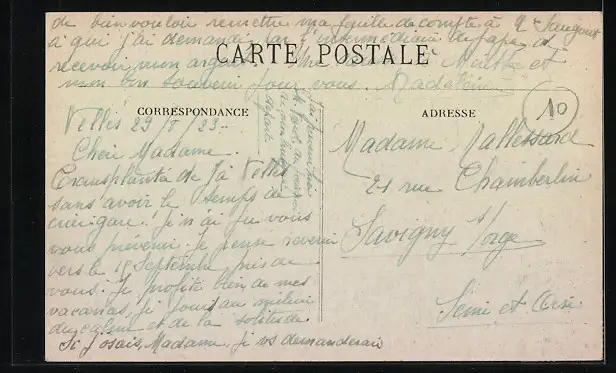 de bien vouloir remettre ma feuille de compte à
à qui j'ai demandé par l'intermédiaire de papa de
recevoir mon argent.
mon bon souvenir pour vous. Madeleine
CARTE POSTALE
CORRESPONDANCE
Velles 29/8/23
Chère Madame
Transplantée de Velles
sans avoir le temps de
crier gare! je n'ai pu vous
vous prévenir. Je pense revenir
vers le 15 Septembre près de
vous. Je profite bien de mes
vacances, je jouis au milieu
du calme et de la solitude.
Si j'osais, Madame, je vs demanderais
ADRESSE
10
Madame Mallessard
21 rue Chamberlin
Savigny s/orge
Seine et Oise